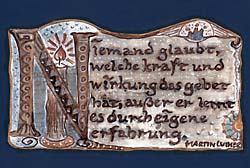 Niemand glaubt,
welche kraft und
wirkung das gebet
hat, außer er lernt
es durch eigene
erfahrung.
MARTIN LUTHER